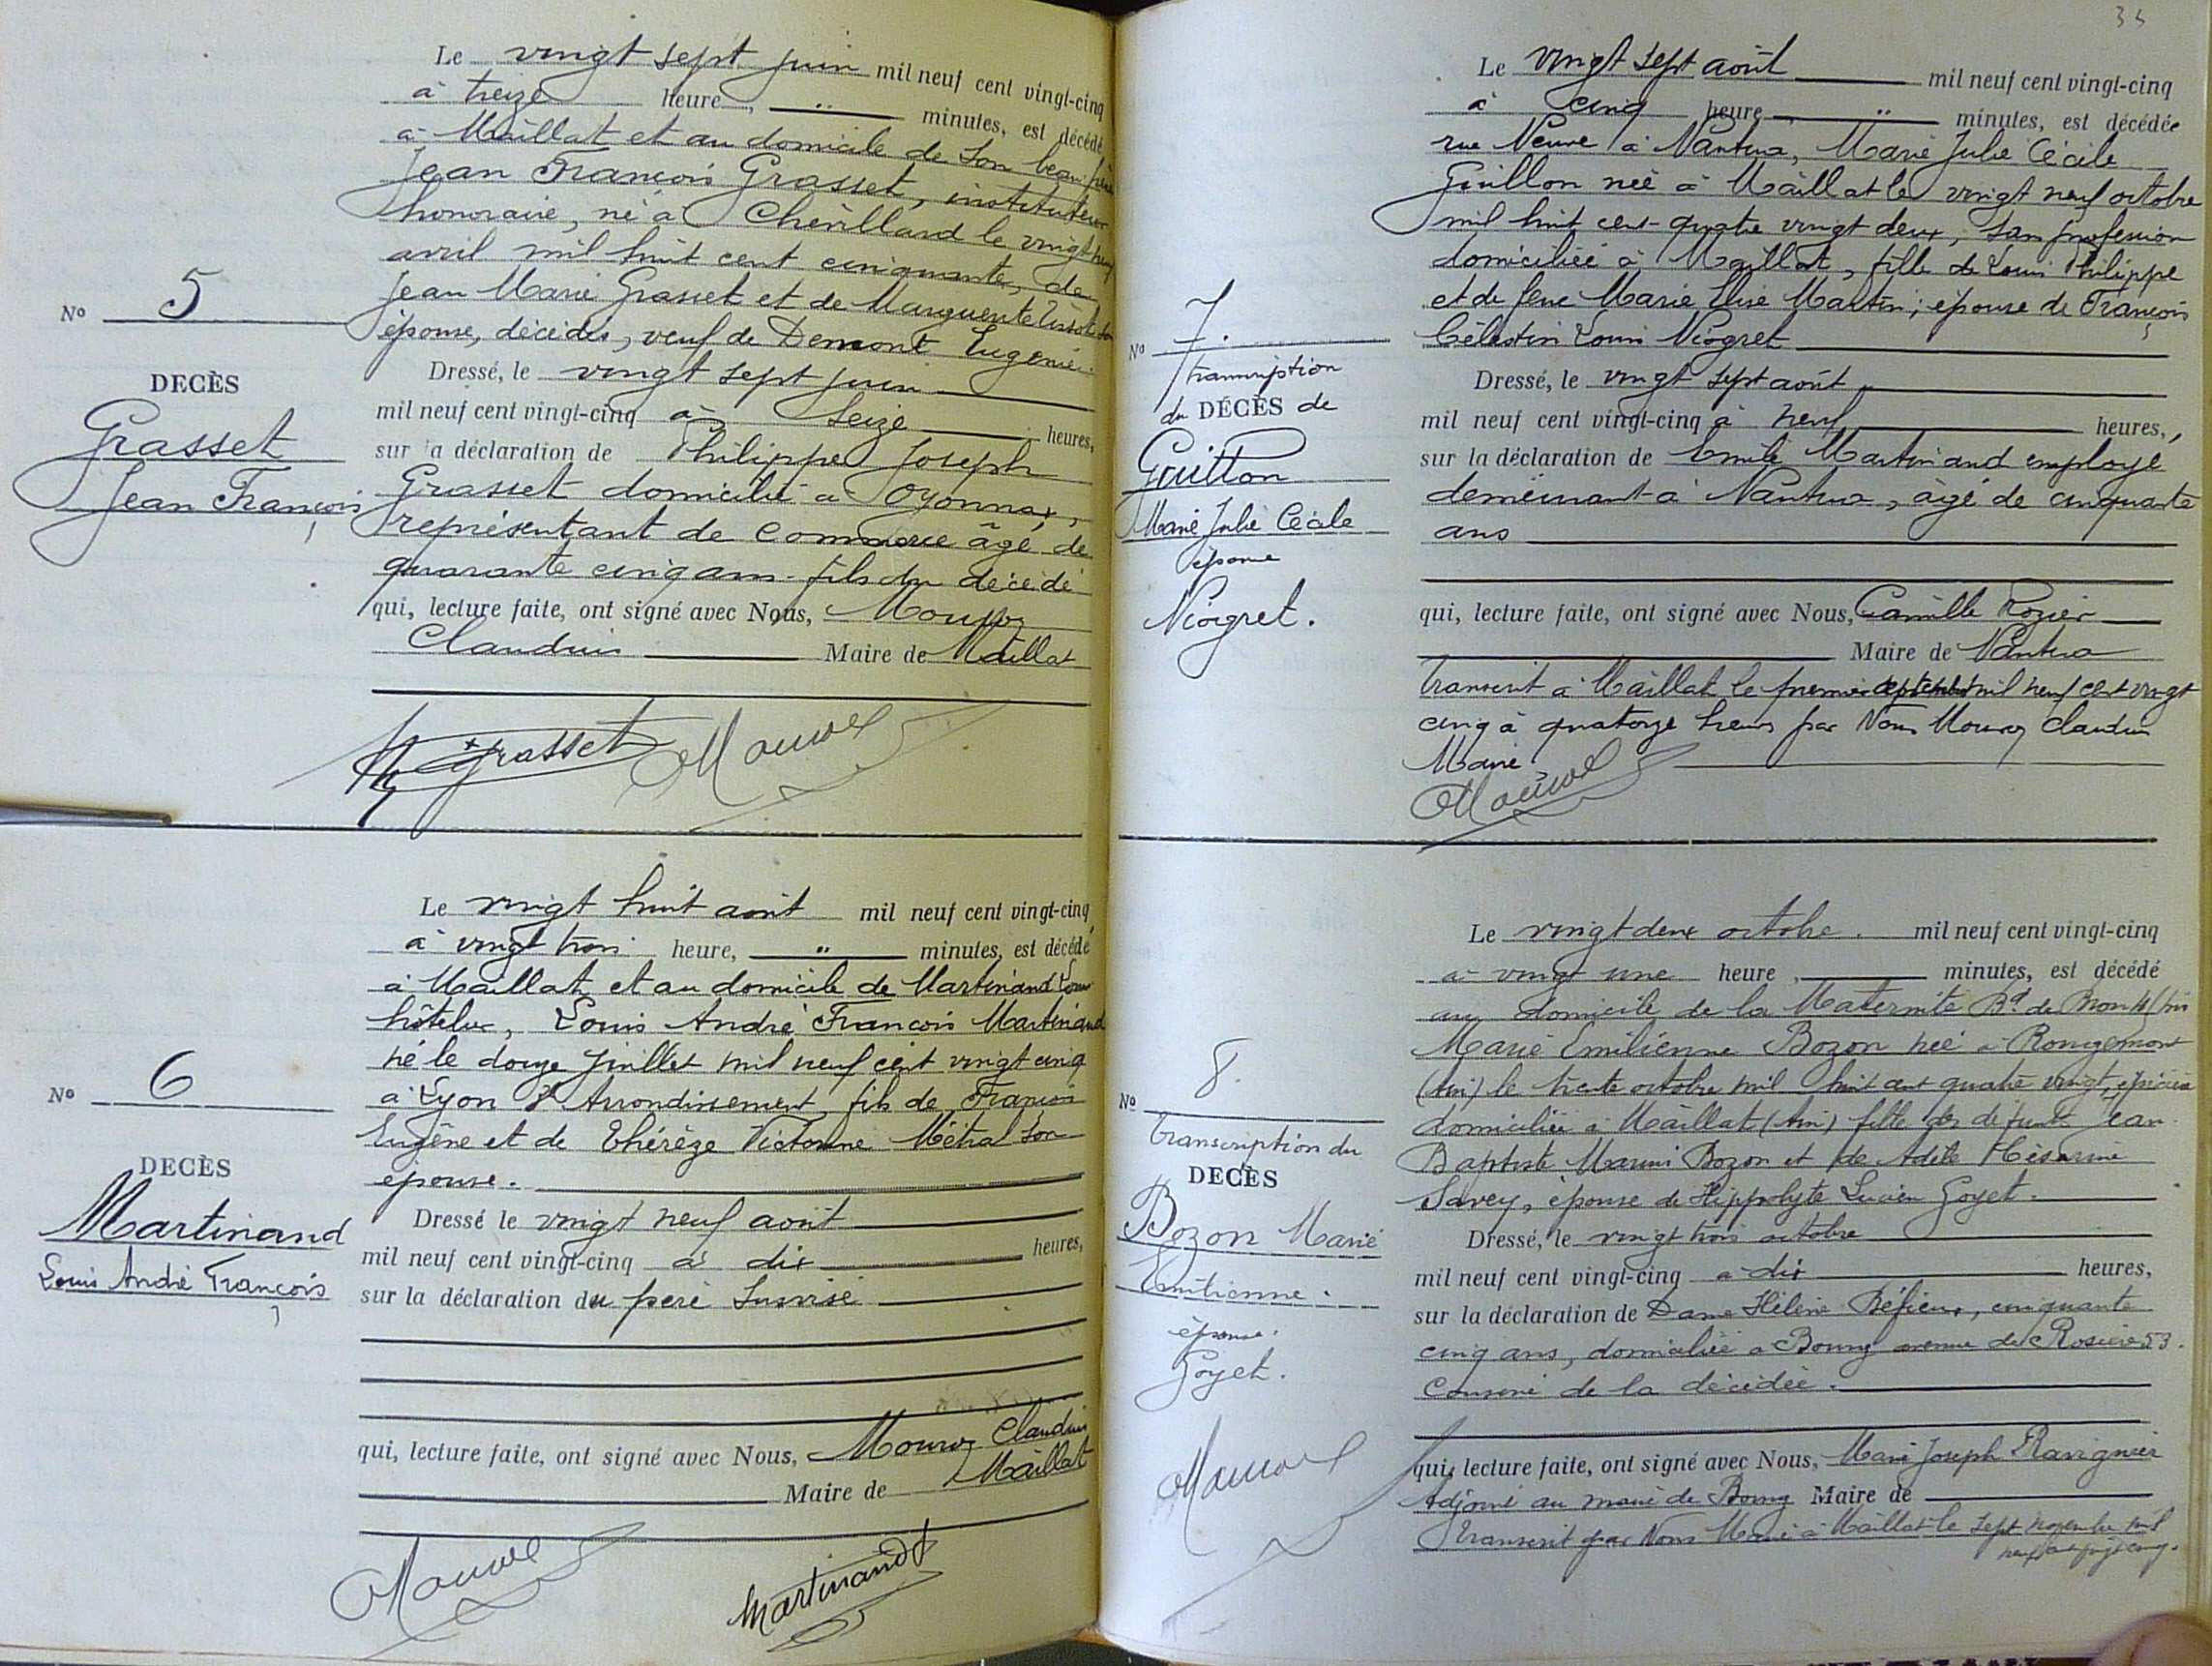 Le vingt sept juin mil neuf cent vingt-cinq
à treize heure, " minutes, est décédé
à Maillat et au domicile de son beau frère
Jean François Grasset, instituteur
honoraire, né à Chevillard le vingt
avril mil huit cent cinquante, de
Jean Marie Grasset et de Marguerite
épouse, décédés, veuf de Demont Eugénie.
No 5
DECÈS
Grasset
Jean François
Dressé, le vingt sept juin
mil neuf cent vingt-cinq à seize heures,
sur la déclaration de Philippe Joseph
Grasset domicilié à Oyonnax,
représentant de commerce âgé de
quarante cinq ans - fils du décédé
qui, lecture faite, ont signé avec Nous,
Claudius Maire de Maillat
Grasset
Le vingt huit août mil neuf cent vingt-cinq,
à vingt trois heure, " minutes, est décédé
à Maillat, et au domicile de Martinand Louis
hôtelier, Louis André François Martinand
né le douze juillet mil neuf cent vingt cinq
à Lyon Arrondissement, fils de François
Eugène et de Thérèze Victorine Métral son
épouse.
No 6
DECÈS
Martinand
Louis André François
Dressé le vingt neuf août
mil neuf cent vingt-cinq à dix heures,
sur la déclaration du père susvisé
qui, lecture faite, ont signé avec Nous, Claudius
Maire de Maillat
Martinand
35
Le vingt sept août mil neuf cent vingt-cinq
à cinq heure, " minutes, est décédée
rue Neuve à Nantua, Marie Julie Cécile
Guillon née à Maillat le vingt neuf octobre
mil huit cent-quatre vingt deux, sans profession
domiciliée à Maillat, fille de Louis Philippe
et de feue Marie Elise Martin; épouse de François
Célestin Louis Niogret
No 7.
Transcription
du DÉCÈS de
Guillon
Marie Julie Cécile
épouse
Niogret.
Dressé, le vingt sept août
mil neuf cent vingt-cinq à neuf heures,
sur la déclaration de Emile Martinand employé
demeurant à Nantua, âgé de cinquante
ans
qui, lecture faite, ont signé avec Nous, Camille Rozier
Maire de Nantua
Transcrit à Maillat le premier septembre mil neuf cent vingt
cinq à quatorze heures par Nous Claudius
Maire
Le vingt deux octobre. mil neuf cent vingt-cinq
à vingt une heure, minutes, est décédé
au domicile de la Maternité Bd de
Marie Emilienne Bozon née à Rougemont
(Ain) le trente octobre mil huit cent quatre vingt, épicière
domiciliée à Maillat (Ain) fille des défunts Jean-
Baptiste Bozon et de Adèle Césarine
Savey, épouse de Hippolyte Lucien Goyet.
No 8.
Transcription du
DECÈS
Bozon Marie
Emilienne.
épouse.
Goyet.
Dressé, le vingt trois octobre
mil neuf cent vingt-cinq à dix heures,
sur la déclaration de Dame Hélène, cinquante
cinq ans, domiciliée à Bourg avenue de Rosière 53.
de la décédée.
qui, lecture faite, ont signé avec Nous, Marie Joseph
Adjoint au maire de Bourg Maire de
Transcrit par Nous Maire à Maillat le sept novembre mil
neuf cent vingt cinq.